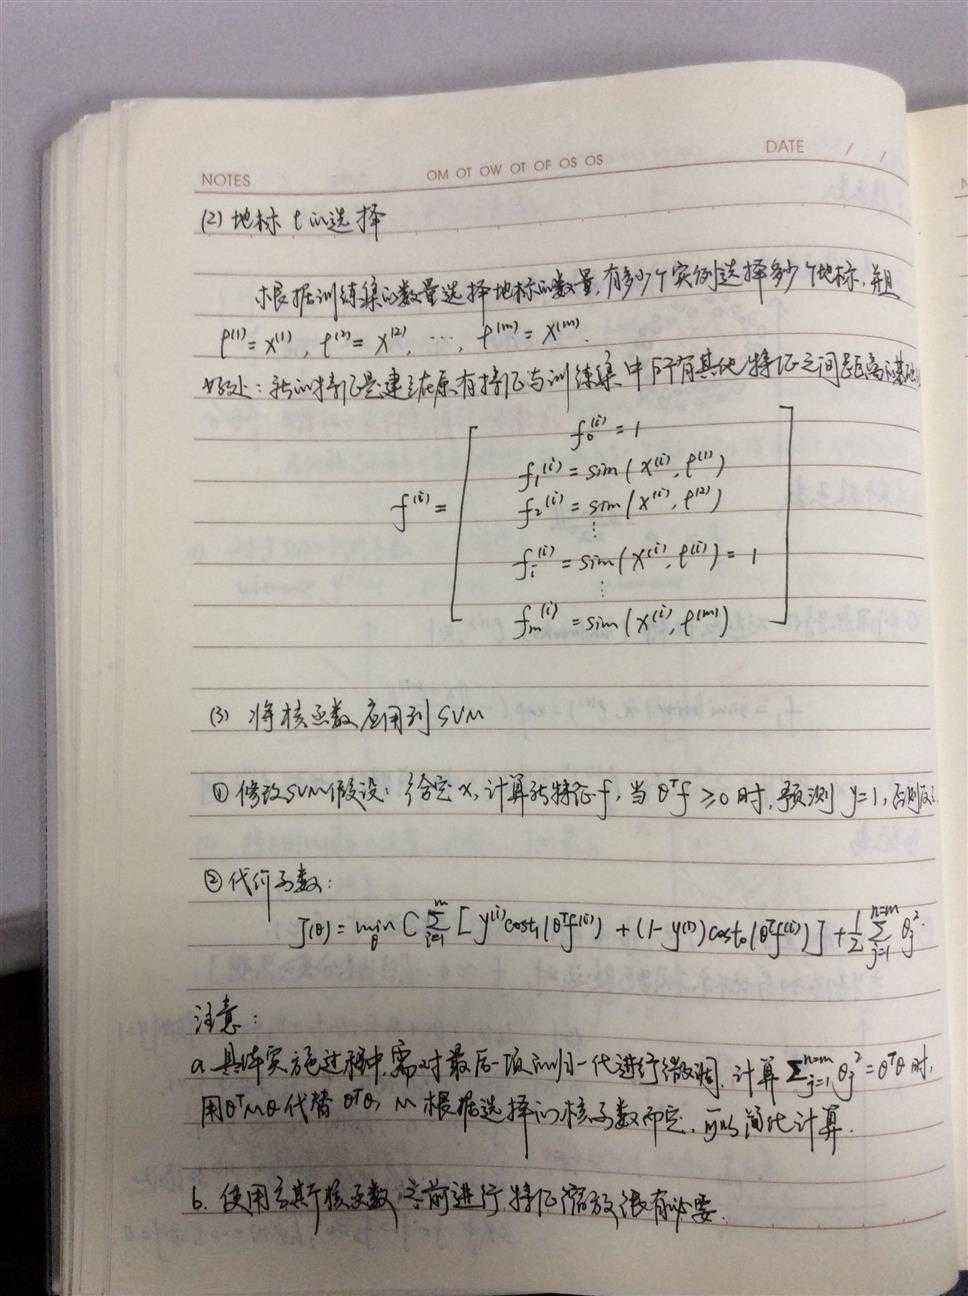 NOTES
OM OT OW OT OF OS OS
DATE / /
(2) 地标 l 的选择
根据训练集的数量选择地标的数量,有多少个实例选择多少个地标,并且
l⁽¹⁾ = x⁽¹⁾, l⁽²⁾ = x⁽²⁾, ⋯, l⁽ᵐ⁾ = x⁽ᵐ⁾.
好处:新的特征是建立在原有特征与训练集中所有其他特征之间距离的基础
f⁽ⁱ⁾ =
f₀⁽ⁱ⁾ = 1
f₁⁽ⁱ⁾ = sim(x⁽ⁱ⁾, l⁽¹⁾)
f₂⁽ⁱ⁾ = sim(x⁽ⁱ⁾, l⁽²⁾)
⋮
fᵢ⁽ⁱ⁾ = sim(x⁽ⁱ⁾, l⁽ⁱ⁾) = 1
⋮
fₘ⁽ⁱ⁾ = sim(x⁽ⁱ⁾, l⁽ᵐ⁾)
(3) 将核函数应用到SVM
① 修改SVM假设:给定x,计算新特征f,当 θᵀf ≥ 0 时,预测 y=1,否则反
② 代价函数:
J(θ) = min_θ C Σ_{i=1}^{m} [y⁽ⁱ⁾cost₁(θᵀf⁽ⁱ⁾) + (1-y⁽ⁱ⁾)cost₀(θᵀf⁽ⁱ⁾)] + 1/2 Σ_{j=1}^{n=m} θⱼ².
注意:
a. 具体实施过程中,需对最后一项的归一化进行微调,计算 Σ_{j=1}^{n=m} θⱼ² = θᵀθ 时,
用θᵀMθ代替θᵀθ, M根据选择的核函数而定,可以简化计算.
b. 使用高斯核函数之前进行特征缩放很有必要.